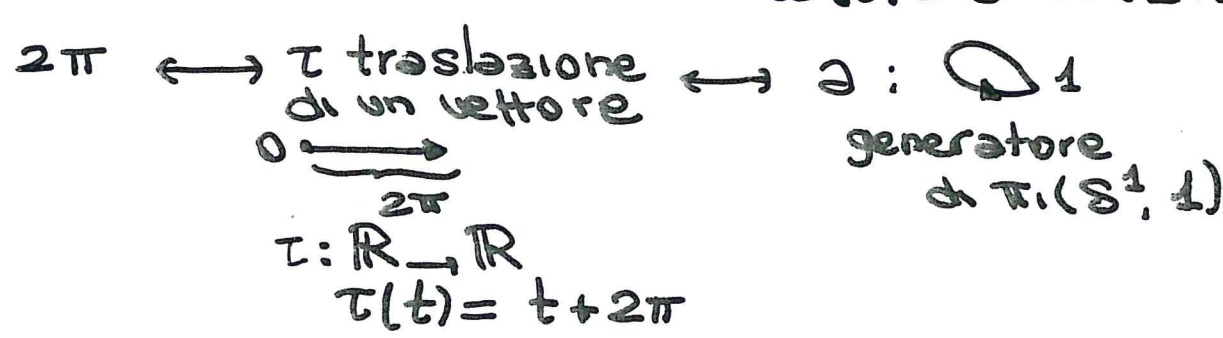 2π ⟷ τ traslazione di un vettore ⟷ a : 1
0
2π
generatore
di π₁(S¹, 1)
τ : ℝ → ℝ
τ(t) = t + 2π